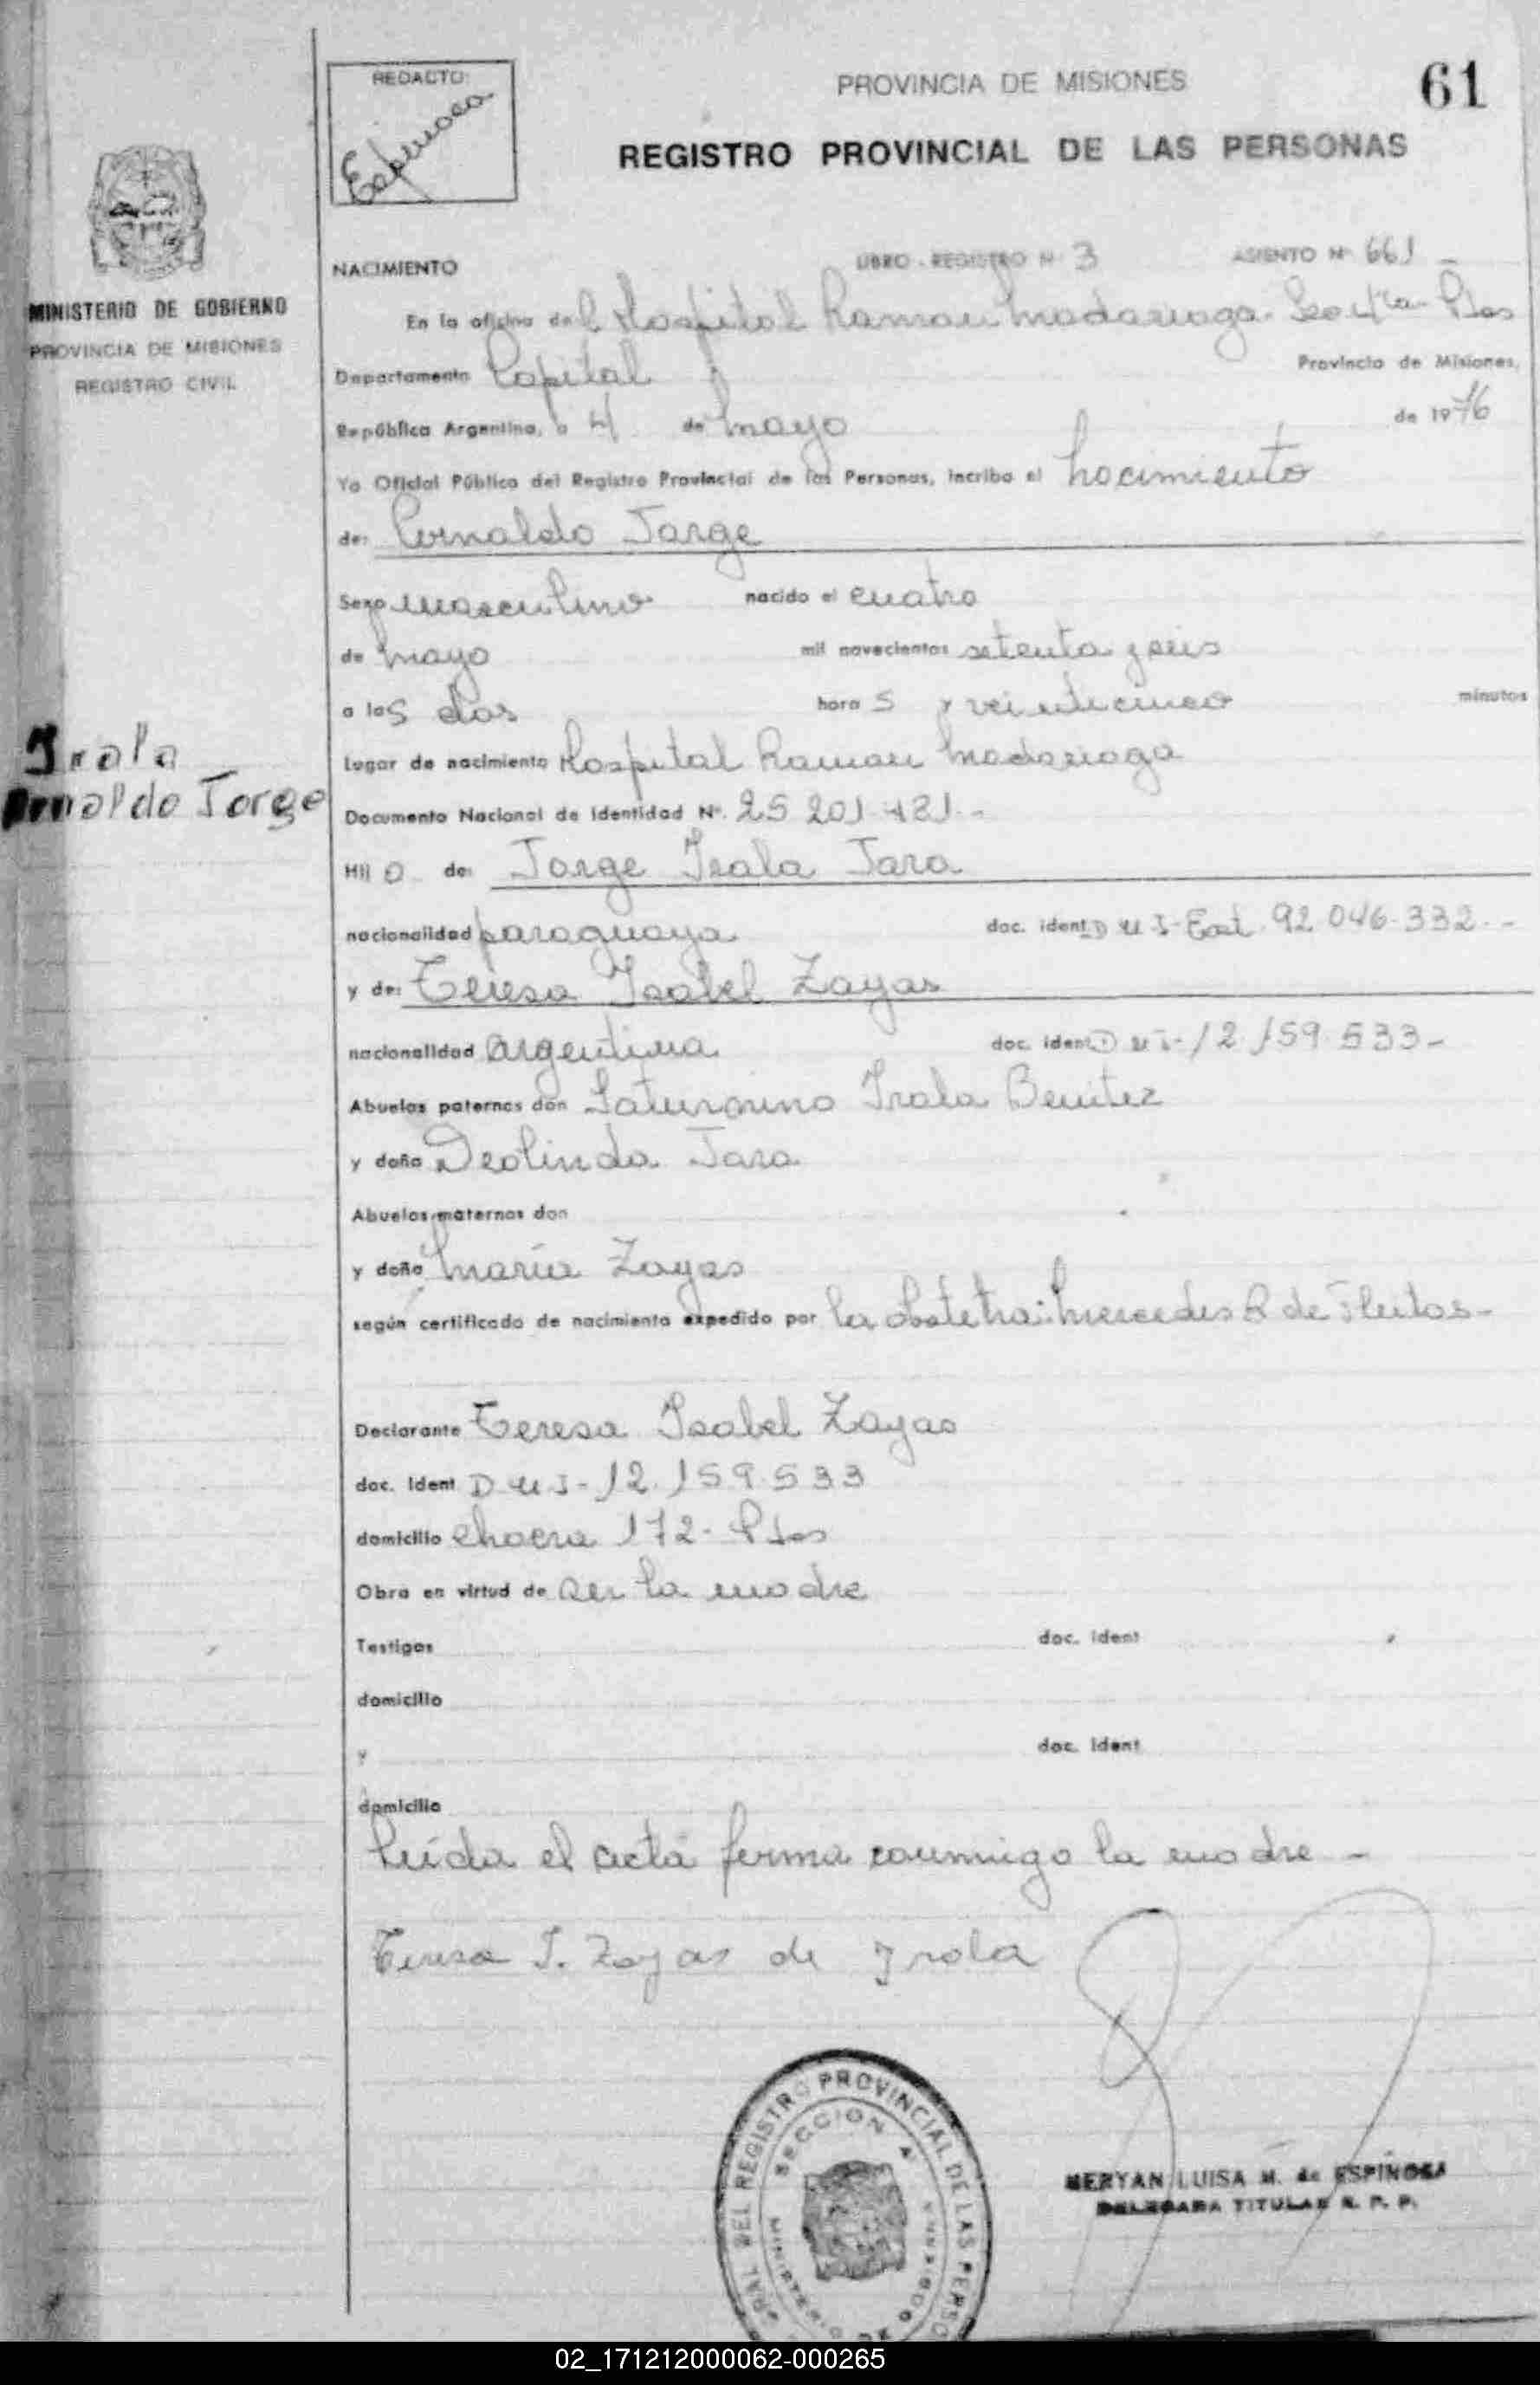 REDACTO:
Espinosa
PROVINCIA DE MISIONES
61
REGISTRO PROVINCIAL DE LAS PERSONAS
MINISTERIO DE GOBIERNO
PROVINCIA DE MISIONES
REGISTRO CIVIL
NACIMIENTO LIBRO - REGISTRO Nº 3 ASIENTO Nº 661 -
En la oficina del Hospital Ramon Madariaga - Sec 4ta - Pdas
Departamento Capital Provincia de Misiones,
República Argentina, a 4 de Mayo de 1976
Yo Oficial Público del Registro Provincial de las Personas, incribo el nacimiento
de: Arnaldo Jorge
Sexo masculino nacido el cuatro
de Mayo mil novecientos setenta y seis
a las dos hora s y veinticinco minutos
Irala
Arnaldo Jorge
lugar de nacimiento Hospital Ramon Madariaga
Documento Nacional de Identidad Nº. 25 201 481.-
Hij o de: Jorge Irala Jara
nacionalidad paraguaya doc. ident D N I - Ext. 92.046.332.-
y de: Teresa Isabel Zayas
nacionalidad argentina doc. ident D N I - 12.159.533-
Abuelos paternos don Saturnino Irala Benitez
y doña Deolinda Jara
Abuelos maternos don
y doña María Zayas
según certificado de nacimiento expedido por la obstetra: Mercedes R de Fleitas-
Declarante Teresa Isabel Zayas
doc. Ident D N I - 12.159.533
domicilio chacra 172 - Pdas
Obra en virtud de ser la madre
Testigos doc. ident
domicilio
y doc. Ident
domicilio
Leída el acta firma conmigo la madre -
Teresa I. Zayas de Irala
REGISTRO PROVINCIAL DE LAS PERSO
SECCION 4ª
MERYAN LUISA M. de ESPINOSA
DELEGADA TITULAR R. P. P.
02_171212000062-000265